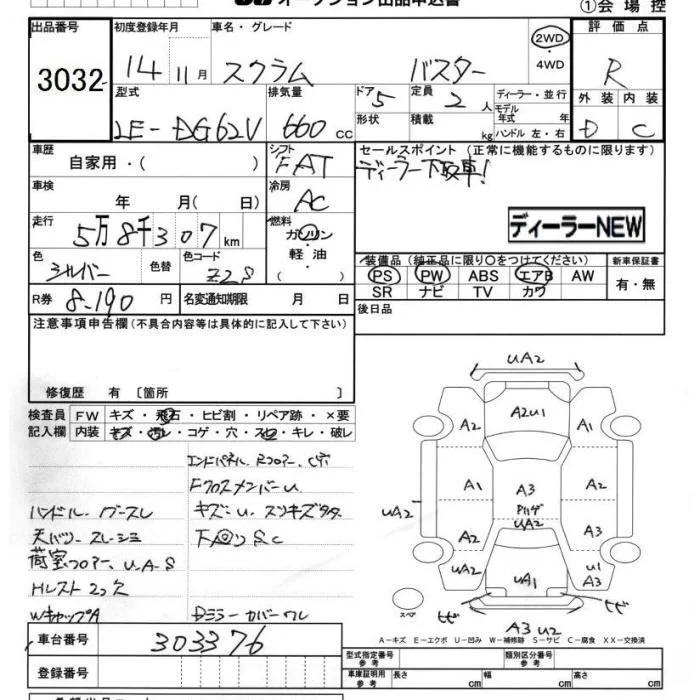 オークション出品申込書
①会場控
出品番号 初度登録年月 車名・グレード 2WD 評価点
3032 14 11月 スクラム バスター ・4WD R
型式 排気量 ドア 5 定員 2 人 ディーラー・並行 外装 内装
LE-DG62V 660 cc 形状 積載 kg モデル年式 年 D C
ハンドル 左・右
車歴 シフト セールスポイント (正常に機能するものに限ります)
自家用・( ) FAT ディーラー下取車!
車検 冷房
年 月( 日) AC
走行 5万8千307km 燃料 ディーラーNEW
ガソリン
色 色替 色コード ・軽油 装備品 (純正品に限り○をつけてください) 新車保証書
シルバー Z2S ( ) PS PW ABS エアB AW 有・無
R券 8-190 円 名変通知期限 月 日 SR ナビ TV カワ
注意事項申告欄(不具合内容等は具体的に記入して下さい) 後日品
修復歴 有 〔箇所 〕
検査員 FW キズ・飛石・ヒビ割・リペア跡・×要
記入欄 内装 キズ・汚レ・コゲ・穴・スレ・キレ・破レ
エンドパネル、Rフロアー、C穴
Fクロスメンバーu
ハンドル、ブースレ キズ~u
天バリ スレ~シミ 下回りSC
荷室フロアー、u.A.S
Hレスト2コ欠
WキャップA Dミラーカバーワレ
UA2
A2U1
A2 A1
A1 A3 A2
UA2 UA2 A3
UA2 UA1 U1
A3
スペア ヒビ ヒビ
A3 U2
A-キズ E-エクボ U-凹み W-補修跡 S-サビ C-腐食 XX-交換済
車台番号 303376 型式指定番号 参考 類別区分番号 参考
登録番号 車庫証明用 参考 長さ cm 幅 cm 高さ cm